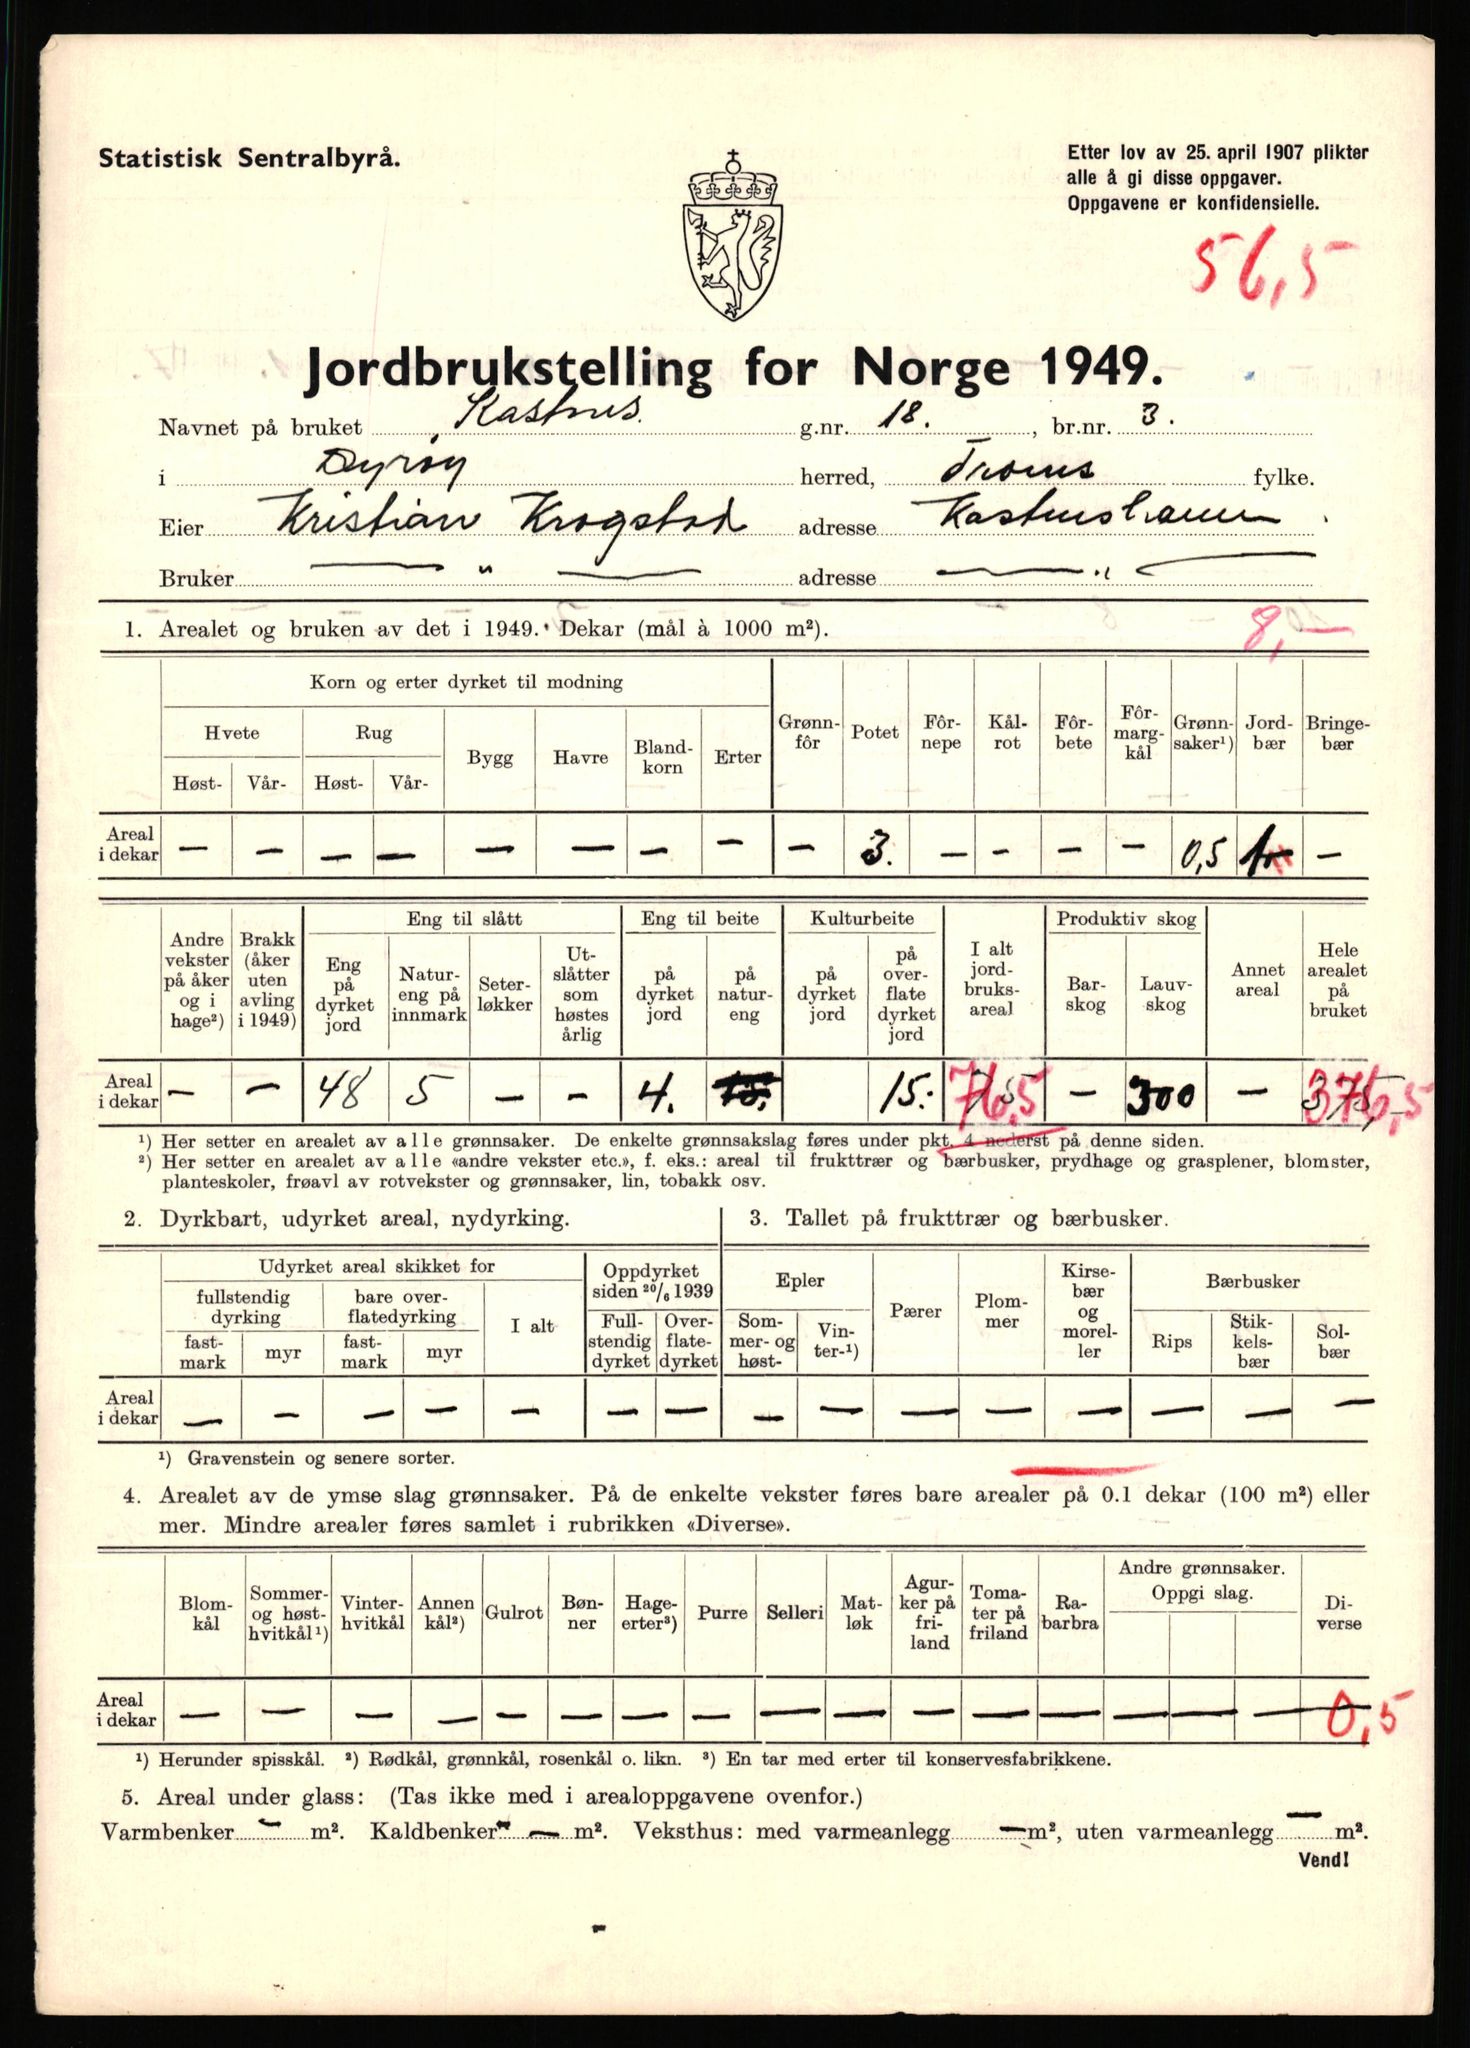 Statistisk Sentralbyrå.
Etter lov av 25. april 1907 plikter
alle å gi disse oppgaver.
Oppgavene er konfidensielle.
56,5
Jordbrukstelling for Norge 1949.
Navnet på bruket Kastnes. g.nr. 18. , br.nr. 3.
i Dyrøy herred, Troms fylke.
Eier Kristian Krogstad adresse Kastneshamn
Bruker — " — adresse — " —
1. Arealet og bruken av det i 1949. Dekar (mål à 1000 m²). 8,—
Korn og erter dyrket til modning
Hvete Rug Bygg Havre Bland-korn Erter Grønn-fôr Potet Fôr-nepe Kål-rot Fôr-bete Fôr-marg-kål Grønn-saker¹) Jord-bær Bringe-bær
Høst- Vår- Høst- Vår-
Areal i dekar — — — — — — — — — 3. — — — — 0,5 —
Eng til slått Eng til beite Kulturbeite Produktiv skog
Andre vekster på åker og i hage²) Brakk (åker uten avling i 1949) Eng på dyrket jord Natur-eng på innmark Seter-løkker Ut-slåtter som høstes årlig på dyrket jord på natur-eng på dyrket jord på over-flate dyrket jord I alt jord-bruks-areal Bar-skog Lauv-skog Annet areal Hele arealet på bruket
Areal i dekar — — 48 5 — — 4. 15. 15. 76,5 — 300 — 376,5
¹) Her setter en arealet av alle grønnsaker. De enkelte grønnsakslag føres under pkt. 4 nederst på denne siden.
²) Her setter en arealet av alle «andre vekster etc.», f. eks.: areal til frukttrær og bærbusker, prydhage og grasplener, blomster,
planteskoler, frøavl av rotvekster og grønnsaker, lin, tobakk osv.
2. Dyrkbart, udyrket areal, nydyrking.
Udyrket areal skikket for Oppdyrket siden 20/6 1939
fullstendig dyrking bare over-flatedyrking I alt Full-stendig dyrket Over-flate-dyrket
fast-mark myr fast-mark myr
3. Tallet på frukttrær og bærbusker.
Epler Pærer Plom-mer Kirse-bær og morel-ler Bærbusker
Som-mer- og høst- Vin-ter-¹) Rips Stik-kels-bær Sol-bær
Areal i dekar — — — — — — — — — — — — — — —
¹) Gravenstein og senere sorter.
4. Arealet av de ymse slag grønnsaker. På de enkelte vekster føres bare arealer på 0.1 dekar (100 m²) eller
mer. Mindre arealer føres samlet i rubrikken «Diverse».
Blom-kål Sommer- og høst-hvitkål¹) Vinter-hvitkål Annen kål²) Gulrot Bøn-ner Hage-erter³) Purre Selleri Mat-løk Agur-ker på fri-land Toma-ter på friland Ra-barbra Andre grønnsaker. Oppgi slag. Di-verse
Areal i dekar — — — — — — — — — — — — — — — — 0,5
¹) Herunder spisskål. ²) Rødkål, grønnkål, rosenkål o. likn. ³) En tar med erter til konservesfabrikkene.
5. Areal under glass: (Tas ikke med i arealoppgavene ovenfor.)
Varmbenker — m². Kaldbenker — m². Veksthus: med varmeanlegg — m², uten varmeanlegg — m².
Vend!